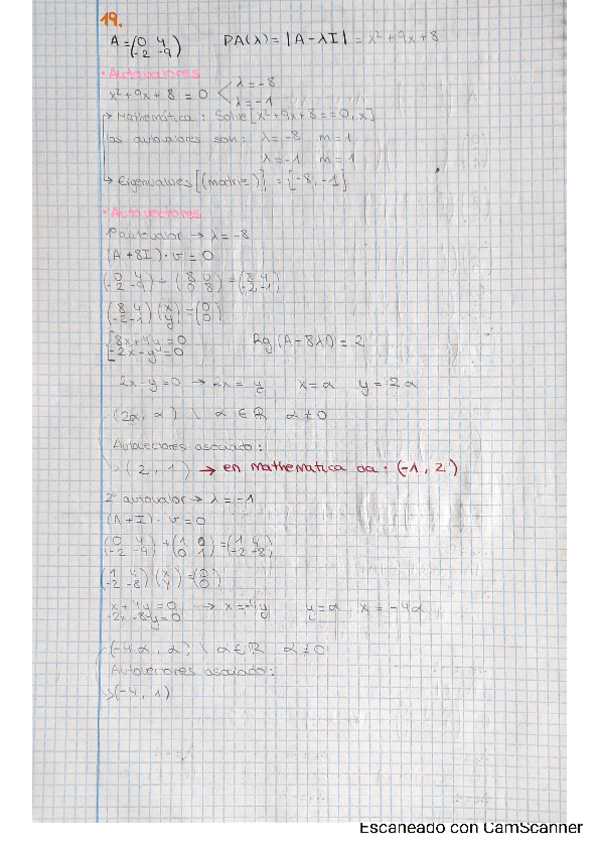 19.
A = (0 4
-2 -9) PA(λ) = |A - λI| = x² + 9x + 8
• Autovalores
x² + 9x + 8 = 0 < λ = -8
λ = -1
→ Mathemática: Solve[x² + 9x + 8 == 0, x]
los autovalores son: λ = -8 m = 1
λ = -1 m = 1
→ Eigenvalues[(matriz)] = {-8, -1}
• Autovectores
1º autovalor → λ = -8
(A + 8I) · v = 0
(0 4
-2 -9) + (8 0
0 8) = (8 4
-2 -1)
(8 4
-2 -1) (x
y) = (0
0)
8x + 4y = 0
-2x - y = 0 Rg(A - 8λI) = 2
2x - y = 0 → 2x = y x = α y = 2α
(2α, α) \ α ∈ ℝ α ≠ 0
Autovectores asociado:
> (2, 1) → en mathematica da: (-1, 2)
2º autovalor → λ = -1
(A + I) · v = 0
(0 4
-2 -9) + (1 0
0 1) = (1 4
-2 -8)
(1 4
-2 -8) (x
y) = (0
0)
x + 4y = 0 → x = -4y y = α x = -4α
-2x - 8y = 0
(-4α, α) \ α ∈ ℝ α ≠ 0
Autovectores asociado:
> (-4, 1)
Escaneado con CamScanner